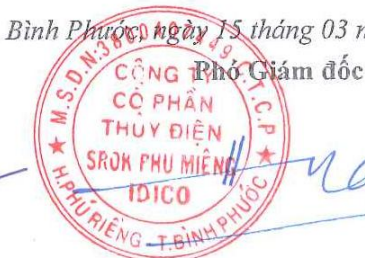 Bình Phước, ngày 15 tháng 03
Phó Giám đốc
M.S.D.N: C.T.C.P
CÔNG TY
CỔ PHẦN
THUỶ ĐIỆN
SROK PHU MIÊNG
IDICO
H.PHÚ RIỀNG - T.BÌNH PHƯỚC